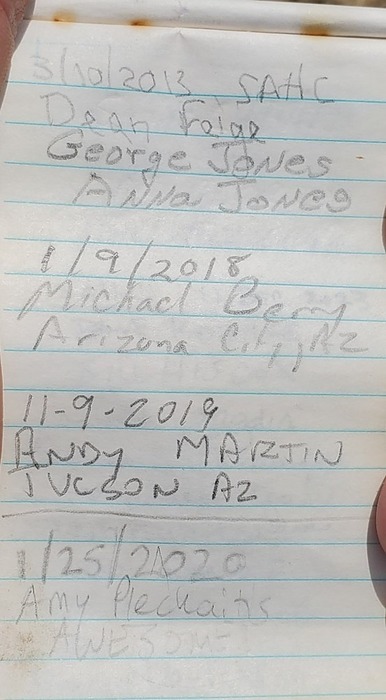 3/10/2013 SAHC
Dean Feige
George Jones
Anna Jones
1/9/2018
Michael Berry
Arizona City, AZ
11-9-2019
ANDY MARTIN
TUCSON AZ
1/25/2020
Amy Plechaitis
AWESOME